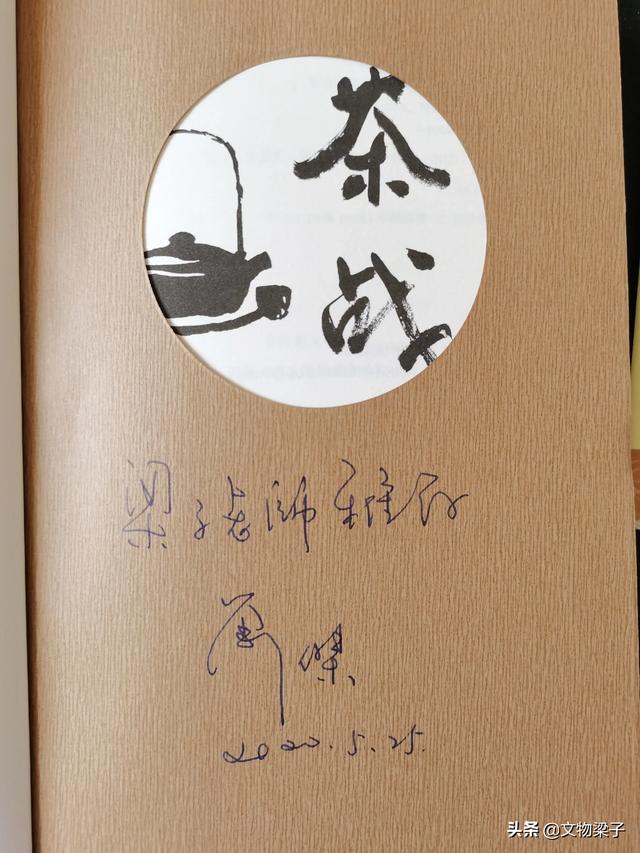 茶战
梁子老師雅
傑
2020.5.25.
头条 @文物梁子